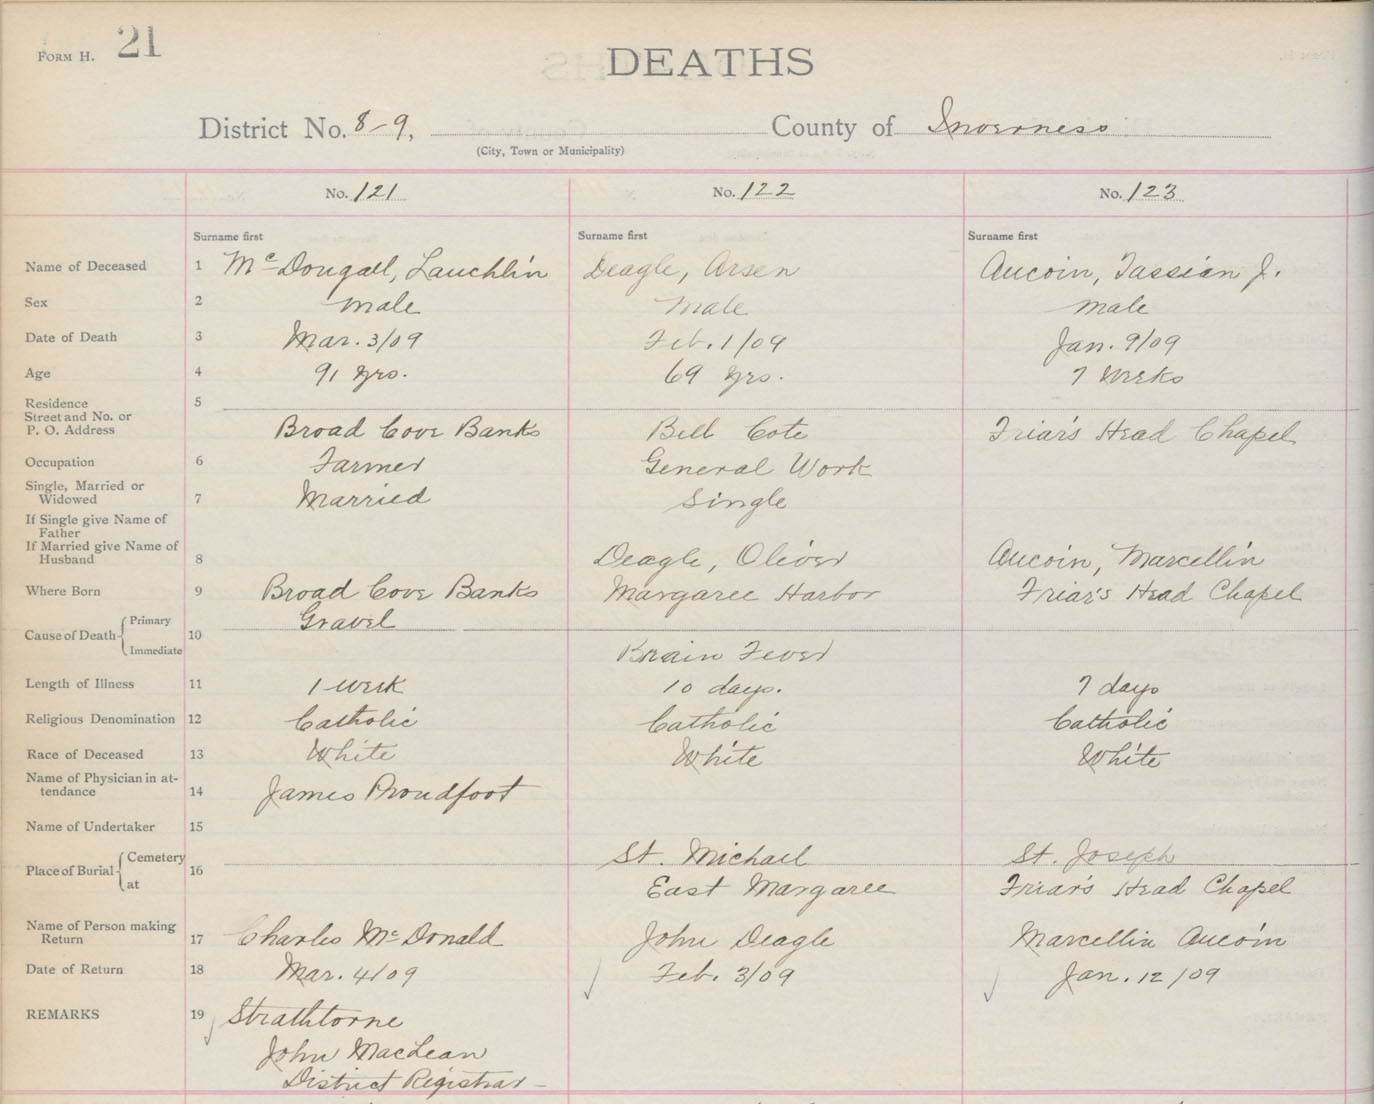 Form H. 21
DEATHS
District No. 8-9,
County of Inverness
(City, Town or Municipality)
No. 121
No. 122
No. 123
Surname first
Surname first
Surname first
Name of Deceased 1 McDougall, Lauchlin Deagle, Arsen Aucoin, Tassian J.
Sex 2 Male Male Male
Date of Death 3 Mar. 3/09 Feb. 1/09 Jan. 9/09
Age 4 91 yrs. 69 yrs. 7 Weeks
Residence 5
Street and No. or
P. O. Address Broad Cove Banks Bell Cote Friar's Head Chapel
Occupation 6 Farmer General Work
Single, Married or
Widowed 7 Married Single
If Single give Name of
Father
If Married give Name of
Husband 8 Deagle, Oliver Aucoin, Marcellin
Where Born 9 Broad Cove Banks Margaree Harbor Friar's Head Chapel
Cause of Death 10 Primary Gravel
Immediate Brain Fever
Length of Illness 11 1 week 10 days. 7 days
Religious Denomination 12 Catholic Catholic Catholic
Race of Deceased 13 White White White
Name of Physician in at-
tendance 14 James Proudfoot
Name of Undertaker 15
Place of Burial 16 Cemetery St. Michael St. Joseph
at East Margaree Friar's Head Chapel
Name of Person making
Return 17 Charles McDonald John Deagle Marcellin Aucoin
Date of Return 18 Mar. 4/09 Feb. 3/09 Jan. 12/09
REMARKS 19 Strathlorne
John MacLean
District Registrar -